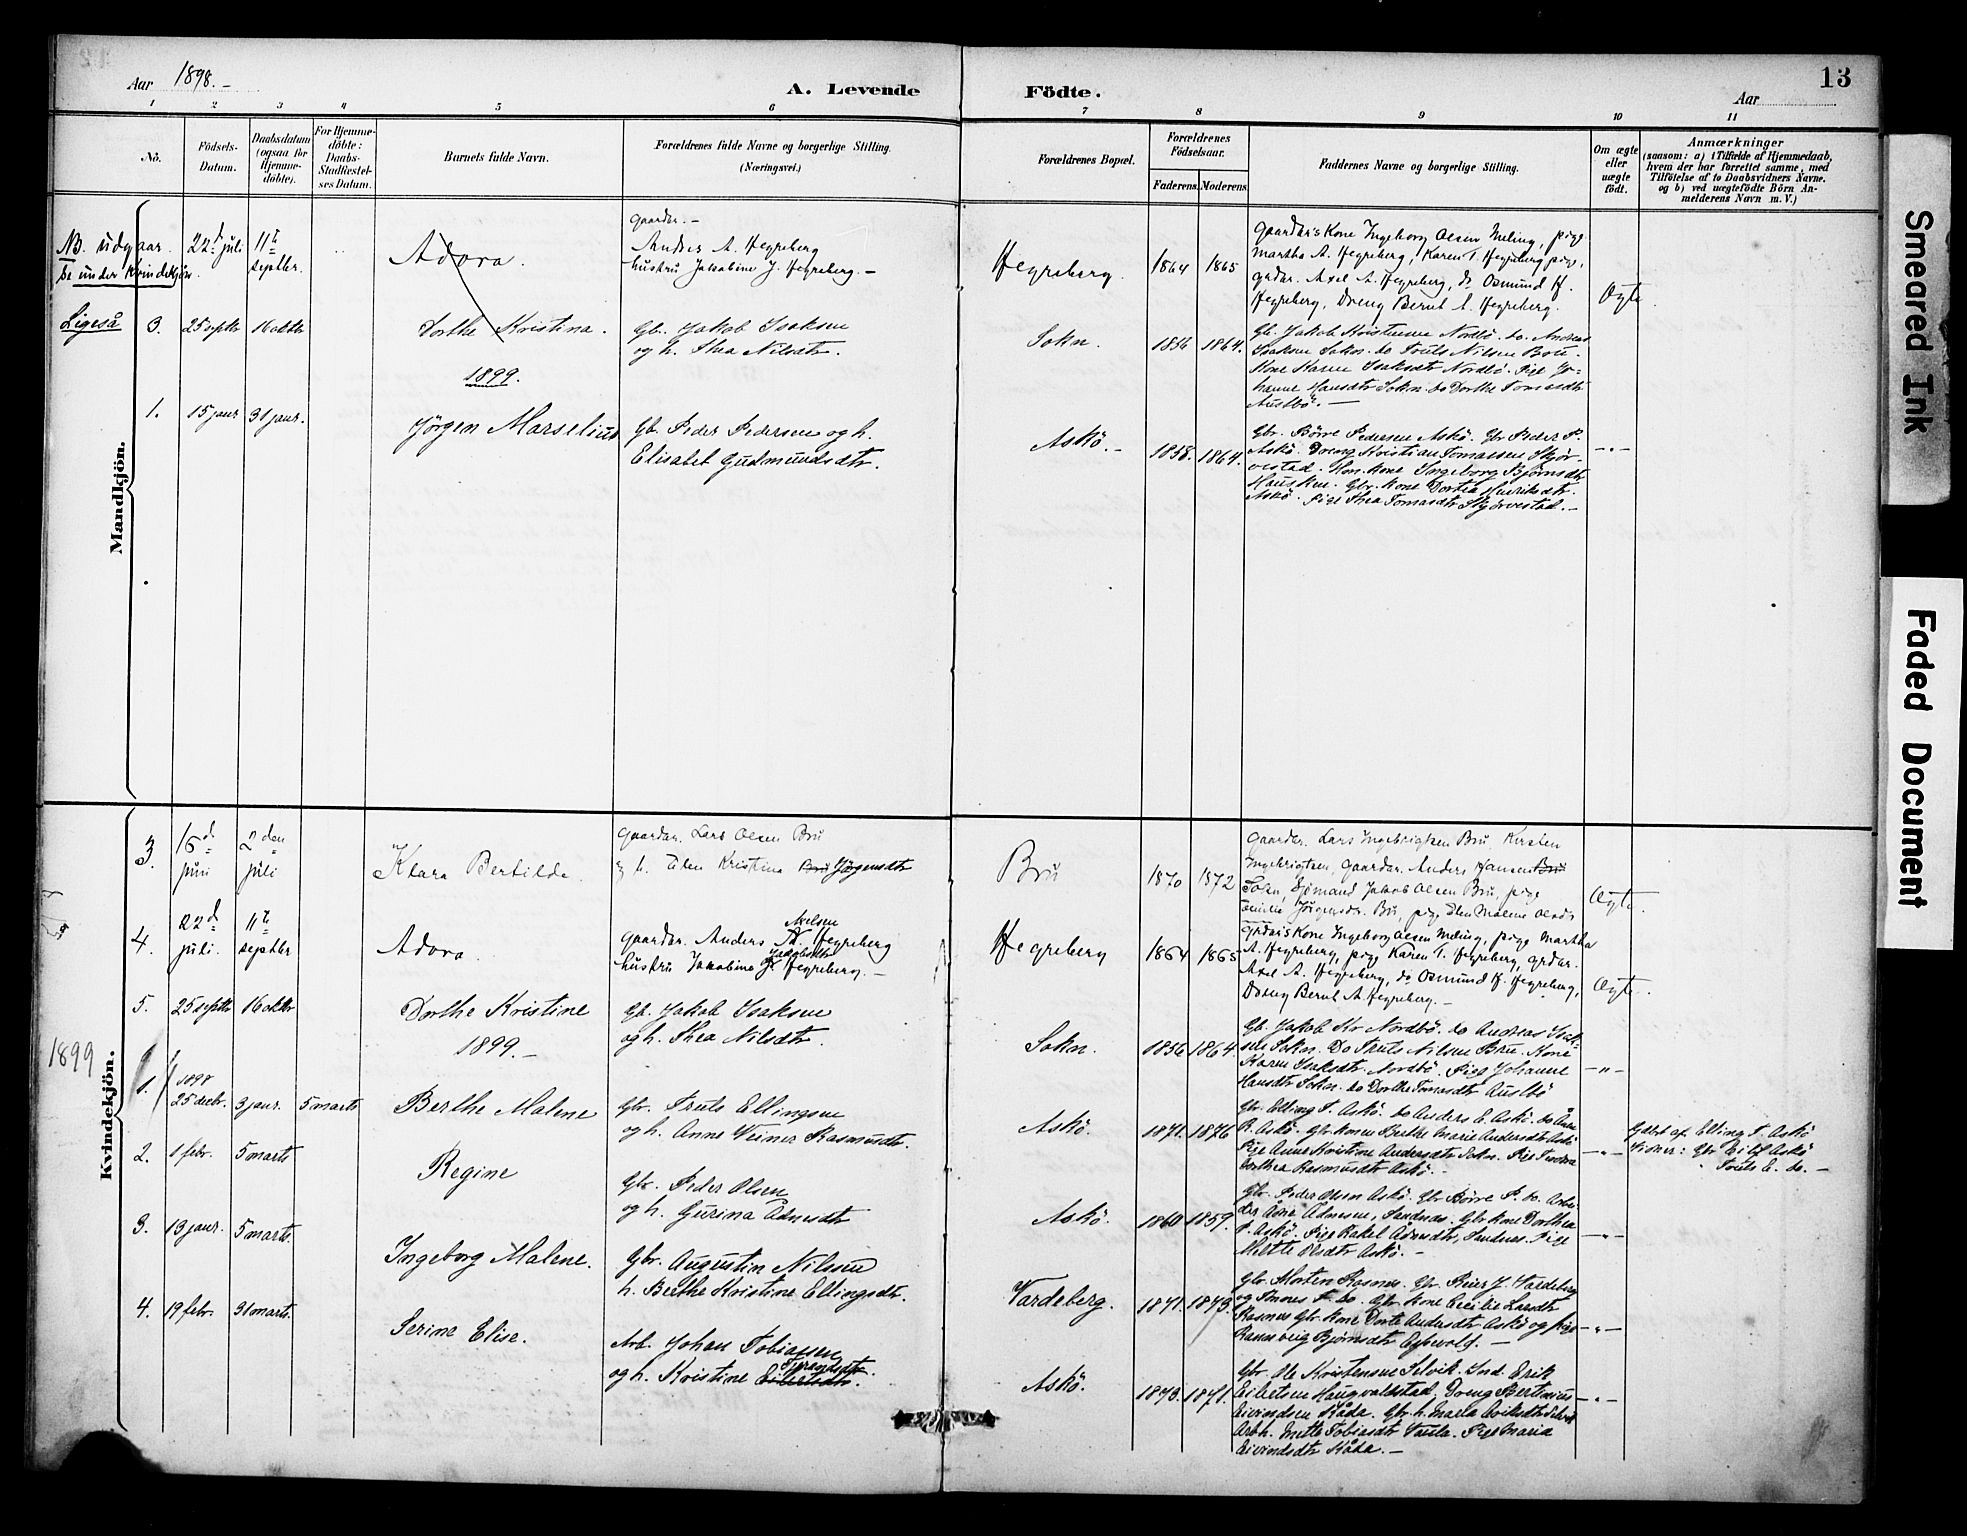 Aar 1898.-
A. Levende Födte.
Aar 13
1 2 3 4 5 6 7 8 9 10 11
No.
Födsels-Datum.
Daabsdatum (ogsaa for Hjemme-döbte).
For Hjemme-döbte: Daabs-Stadfæstel-ses Datum.
Barnets fulde Navn.
Forældrenes fulde Navne og borgerlige Stilling.
(Næringsvei.)
Forældrenes Bopæl.
Forældrenes Födselsaar.
Faderens. Moderens.
Faddernes Navne og borgerlige Stilling.
Om ægte eller uægte födt.
Anmærkninger
(saasom: a) i Tilfælde af Hjemmedaab,
hvem der har forrettet samme, med
Tilföielse af to Daabsvidners Navne.
og b) ved uægtefödte Börn An-
melderens Navn m. V.)
Mandkjön.
NB. udgaar.
Se under Kvindekjön.
22d juli
11te septbr.
Adora.
Gaardbr.-
Anders A. Hegreberg
hustru Jakobine J. Hegreberg.-
Hegreberg.
1864 1865
Gaardbr's Kone Ingeborg Olsen Meling, pige
Martha A. Hegreberg, Karen T. Hegreberg pige,
grdbr. Axel A. Hegreberg, do Osmund H.
Hegreberg, Dreng Bernt A. Hegreberg.
Ægte.
Ligeså
3. 25 septbr 16 oktbr
Dorthe Kristina.
Gb. Jakob Isaksen
og h. Thea Nilsdtr.
Sokn.
1856 1864.
Gb. Jakob Kristensen Nordbö. do. Andreas
Isaksen Sokn. do Truls Nilsen Bru.
Kone Karen Isaksdtr Nordbö. Pige Jo-
hanne Hansdtr Sokn. do Dorthe Tomasdtr
Austbö.-
1899.
1. 15 janr 31 janr.
Jörgen Marselius
Gb. Peder Pedersen og h.
Elisabet Gudmundsdtr.
Askö.-
1858. 1864.
Gbr. Börre Pedersen Askö. Gbr Peder P.
Askö. Dreng Kristian Tomassen Skjör-
vestad. Kone Ingeborg Bjørnsdtr
Hausken. Gbr. kone Dortea Henriksdtr.
Askö. Pige Thea Tomasdtr Skjörvestad.-
-"-
Kvindekjön.
3. 16d juni
2den juli
Klara Bertilde.
Gaardbr. Lars Olsen Bru
& h. Elen Kristina Bru Jörgensdtr
Bru
1870 1872
Gaardbr. Lars Ingebrigtsen Bru, Kirsten
Ingebrigtsen, Gaardbr. Anders Hansen Bru
Sokn, Sjömand Jakob Olsen Bru, pige
Jörgensdr. Bru, pige Elen Malene Olsdr
Ægte.
4. 22d juli.
11te septbr
Adora.
Gaardbr. Anders A. Axelsen Hegreberg
hustru Jakobine J. Jakobsdtr Hegreberg.-
Hegreberg
1864 1865
Grdbr's Kone Ingeborg Olsen Meling, pige Martha
A. Hegreberg, pige Karen T. Hegreberg, grdbr.
Axel A. Hegreberg, do Osmund H. Hegreberg,
Dreng Bernt A. Hegreberg.-
Ægte.
5. 25 septbr 16 oktbr
Dorthe Kristine
Gb. Jakob Isaksen
og h. Thea Nilsdtr.
Sokn.
1856 1864.
Gb. Jakob Kr Nordbö. do Andreas Isak-
sen Sokn. Do Truls Nilsen Bru. Kone
Karen Isaksdtr. Nordbö. Pige Johanne
Hansdtr Sokn. do Dorthe Tomasdtr Austbö
-"-
1899
1899.-
1. 1898 25 decbr. 3 janr. 5 marts
Berthe Malene
Gbr. Truls Ellingsen
og h. Anne Rasmusdtr.
Askö.
1871. 1876
Gbr. Elling T. Askö. do Anders E. Askö. do
R. Askö. Gbr. kone Berthe Marie Andersdtr Askö
Pige Anne Kristine Andersdtr Sokn. Pige
Dorthea Rasmusdtr Askö.-
-"-
Göbt af. Elling T. Askö
Vidner: Gbr Eilif Askö
" Truls E. do.-
2. 1 febr. 5 marts
Regine
Gbr. Peder Olsen
og h. Gurina Adnesdtr
Askö.
1860 1859.
Gbr. Peder Olsen Askö. Gbr Börre P. do. Arbei-
der Adnesen, Sandnes. Gbr kone Dorthea
P. Askö. Pige Rakel Adnesdtr, Sandnes. Pige
Mette Olsdtr Askö.-
-"-
3. 13 janr. 5 marts.
Ingeborg Malene.
Gbr. Augustin Nilsen
h. Berthe Kristine Ellingsdtr.
Vardeberg.
1871. 1873.
Gbr. Morten Rasnes. Gbr. Peder J. Vardeberg
og do. Gbr. kone Cecilie Larsdtr
Rasnes Gbr. kone Dorte Andersdtr Askö og pige
Bjørnsdtr
-"-
4. 19 febr. 31 marts.
Serine Elise.
Arb. Johan Tobiassen
og h. Kristine
Askö.
1873. 1871.
Gbr. Ole Kristensen Selvik. Ind. Erik
Eibertsen Haugvaldstad. Dreng Bertinius
Eivindsen Kåda. Gbr. h. Marta
Arbh. Mette Tobiasdtr Pige Maria
Eivindsdtr Kåda.-
-"-
Smeared Ink
Faded Document